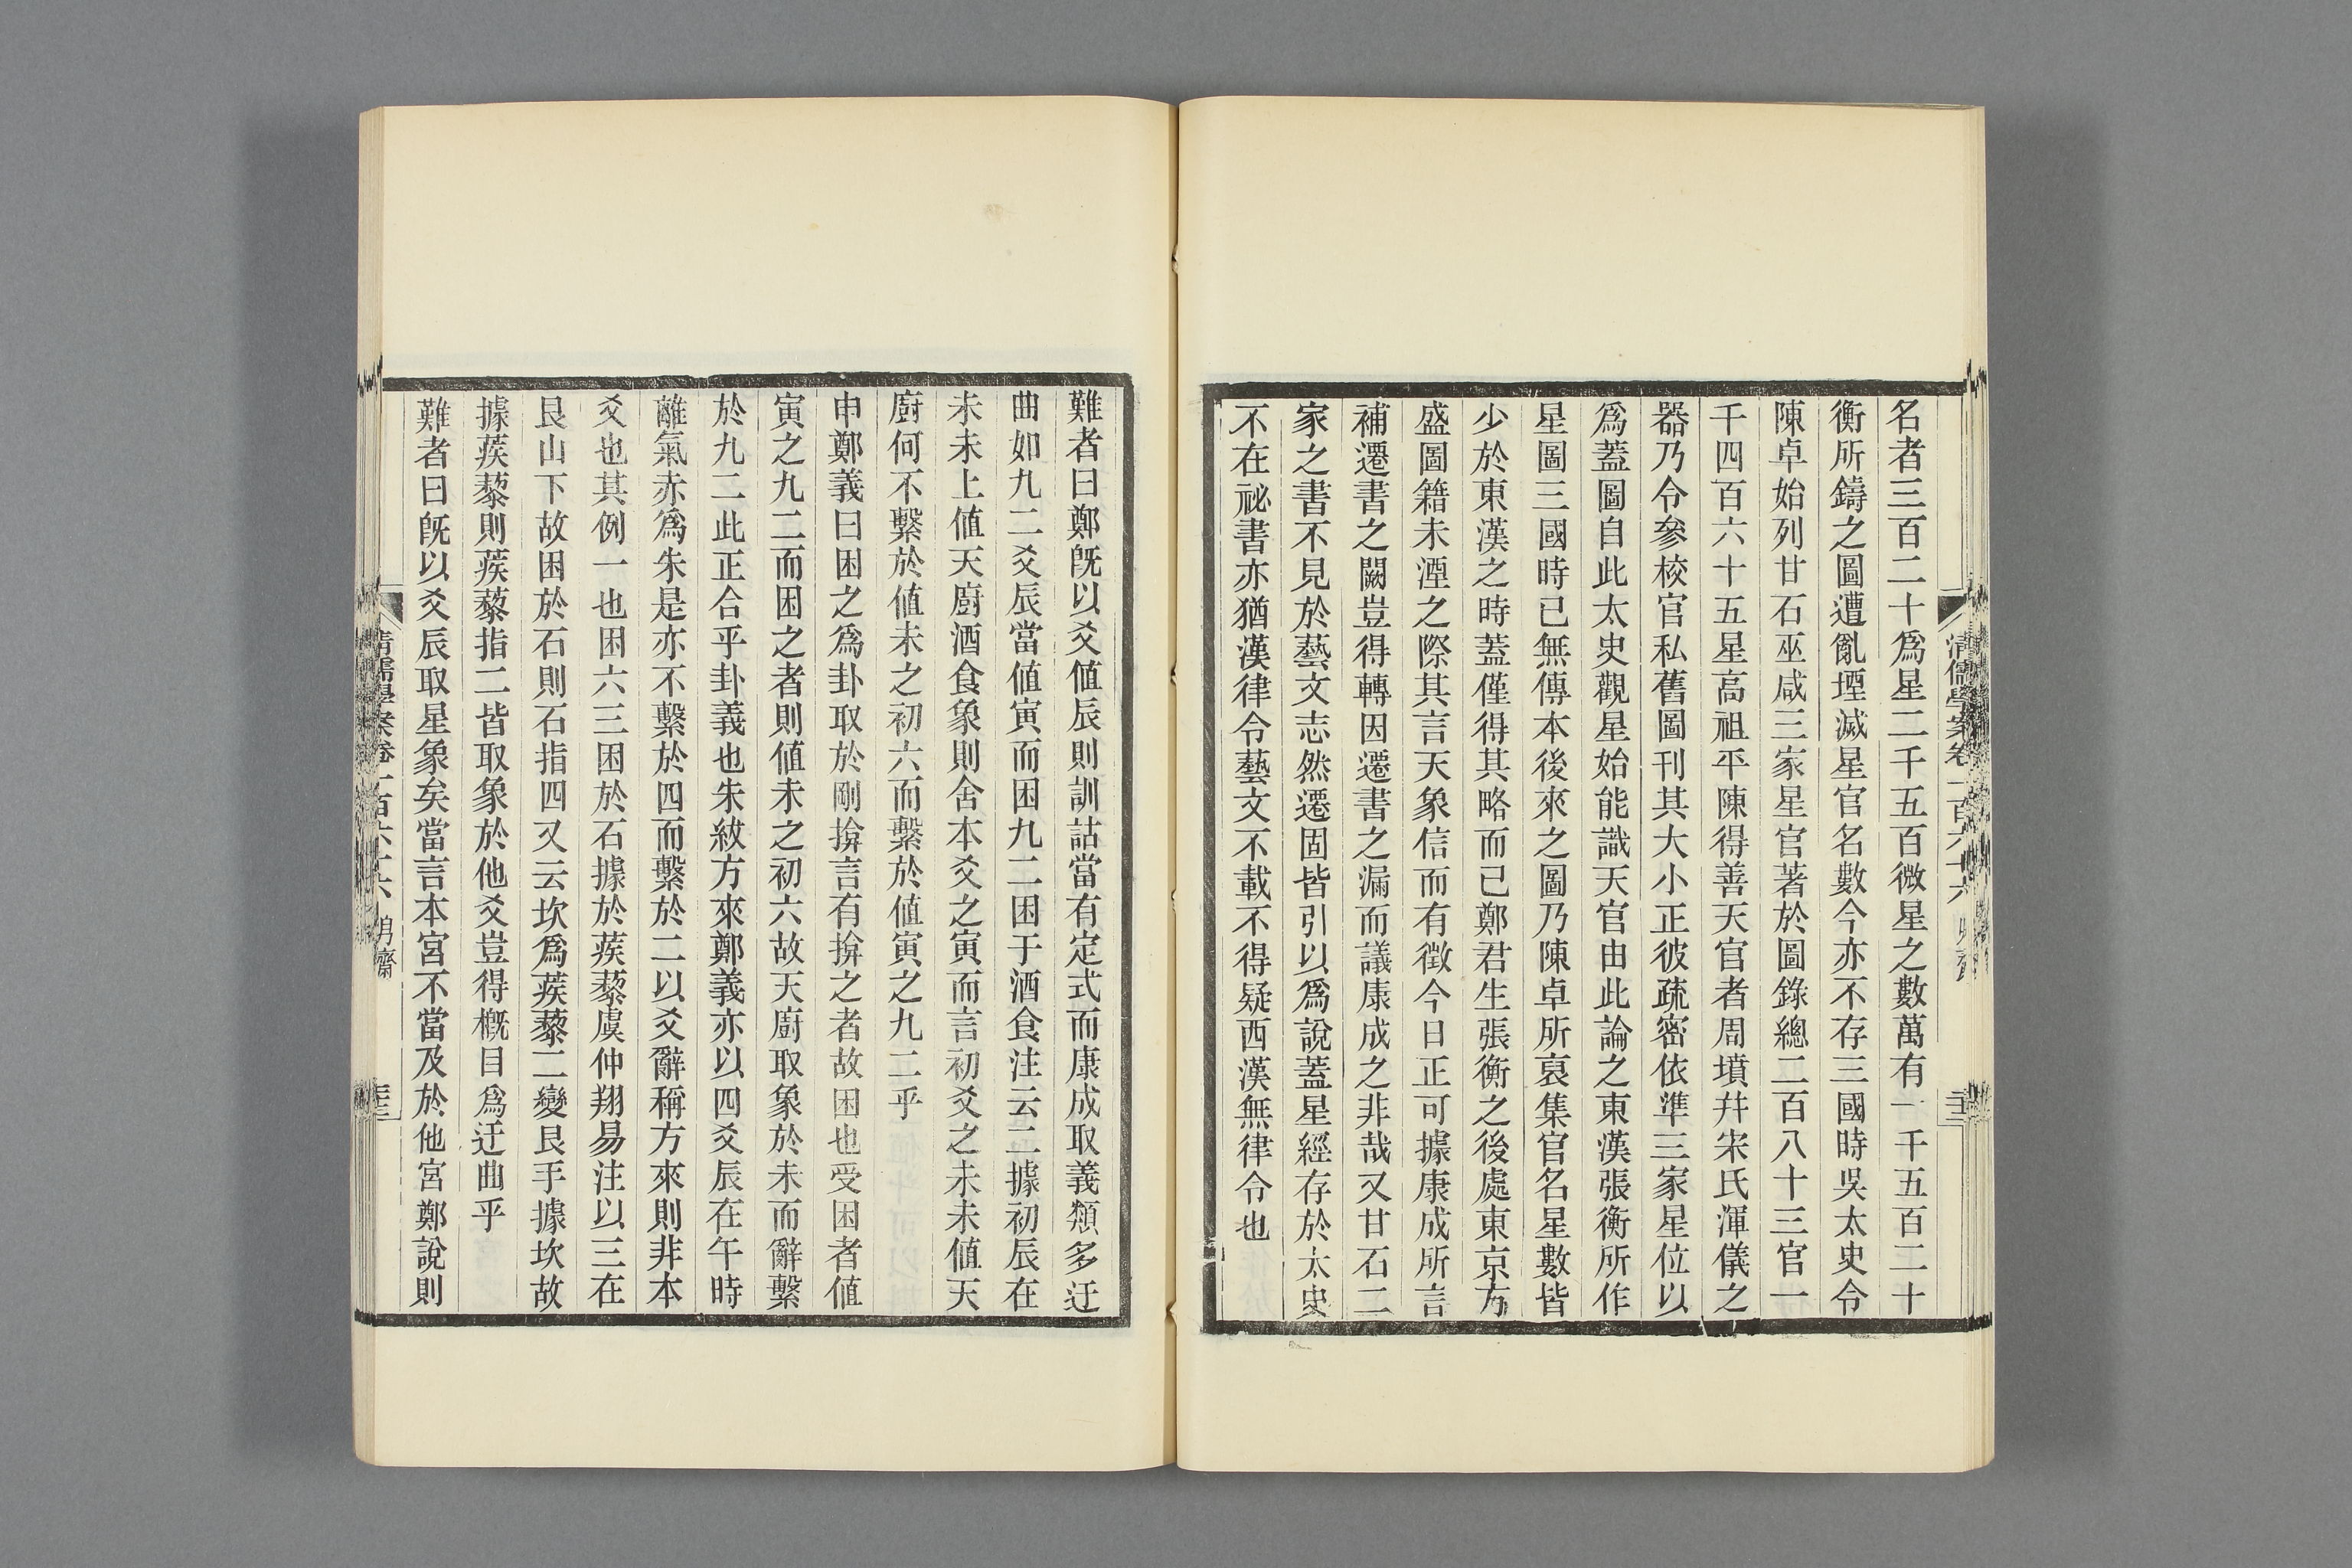 名者三百二十爲星二千五百微星之數萬有一千五百二十
衡所鑄之圖遭亂堙滅星官名數今亦不存三國時吳太史令
陳卓始列甘石巫咸三家星官著於圖錄總二百八十三官一
千四百六十五星高祖平陳得善天官者周墳幷宋氏渾儀之
器乃令參校官私舊圖刊其大小正彼疏密依準三家星位以
爲蓋圖自此太史觀星始能識天官由此論之東漢張衡所作
星圖三國時已無傳本後來之圖乃陳卓所裒集官名星數皆
少於東漢之時蓋僅得其略而已鄭君生張衡之後處東京方
盛圖籍未湮之際其言天象信而有徵今日正可據康成所言
補遷書之闕豈得轉因遷書之漏而議康成之非哉又甘石二
家之書不見於藝文志然遷固皆引以爲說蓋星經存於太史
不在祕書亦猶漢律令藝文不載不得疑西漢無律令也
清儒學案卷一百六十六
難者曰鄭旣以爻值辰則訓詁當有定式而康成取義類多迂
曲如九二爻辰當值寅而困九二困于酒食注云二據初辰在
未未上值天廚酒食象則舍本爻之寅而言初爻之未未值天
廚何不繫於值未之初六而繫於值寅之九二乎
申鄭義曰困之爲卦取於剛揜言有揜之者故困也受困者值
寅之九二而困之者則值未之初六故天廚取象於未而辭繫
於九二此正合乎卦義也朱紱方來鄭義亦以四爻辰在午時
離氣赤爲朱是亦不繫於四而繫於二以爻辭稱方來則非本
爻也其例一也困六三困於石據於蒺藜虞仲翔易注以三在
艮山下故困於石則石指四又云坎爲蒺藜二變艮手據坎故
據蒺藜則蒺藜指二皆取象於他爻豈得概目爲迂曲乎
難者曰旣以爻辰取星象矣當言本宮不當及於他宮鄭說則
清儒學案卷一百六十六